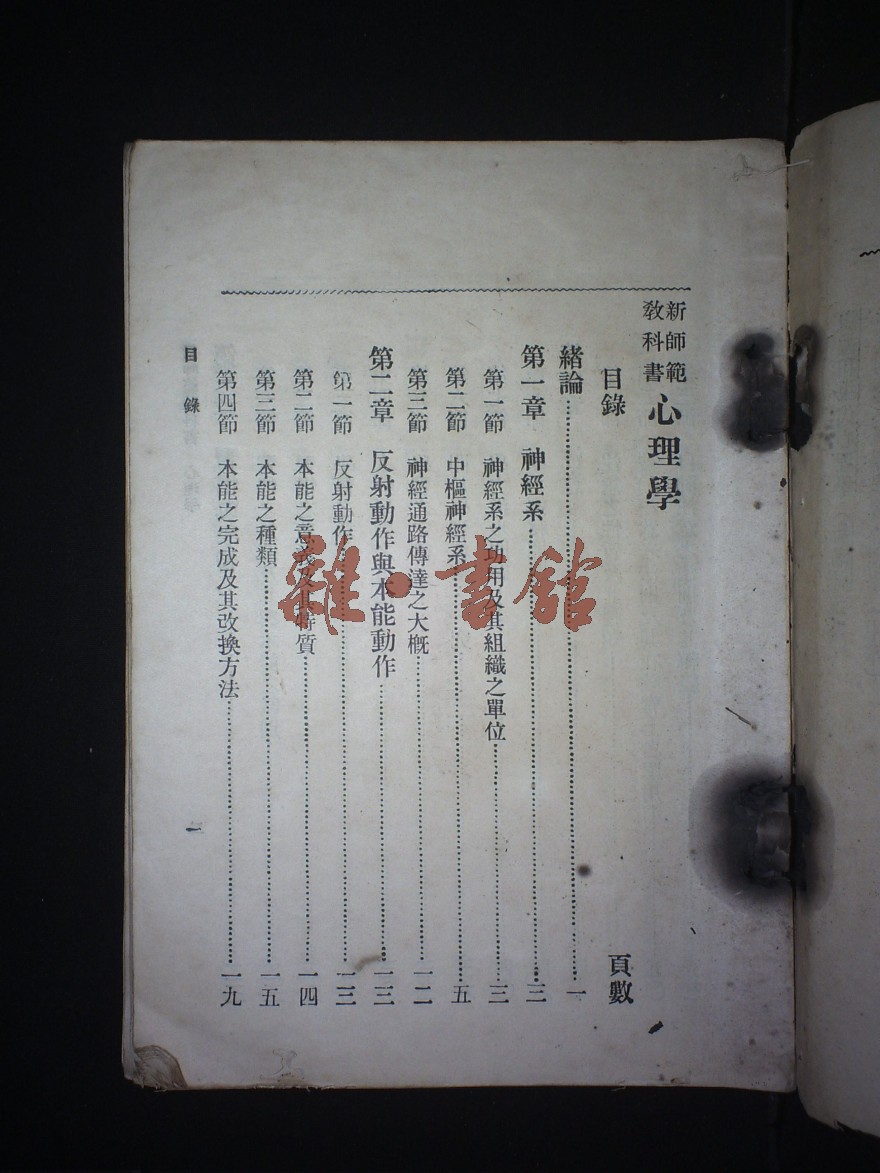 新師範
教科書 心理學
目錄 頁數
緒論 一
第一章 神經系 三
第一節 神經系之功用及其組織之單位 三
第二節 中樞神經系 五
第三節 神經通路傳達之大概 一二
第二章 反射動作與本能動作 一三
第一節 反射動作 一三
第二節 本能之意義及其特質 一四
第三節 本能之種類 一五
第四節 本能之完成及其改換方法 一九
目錄 一
雜·書館